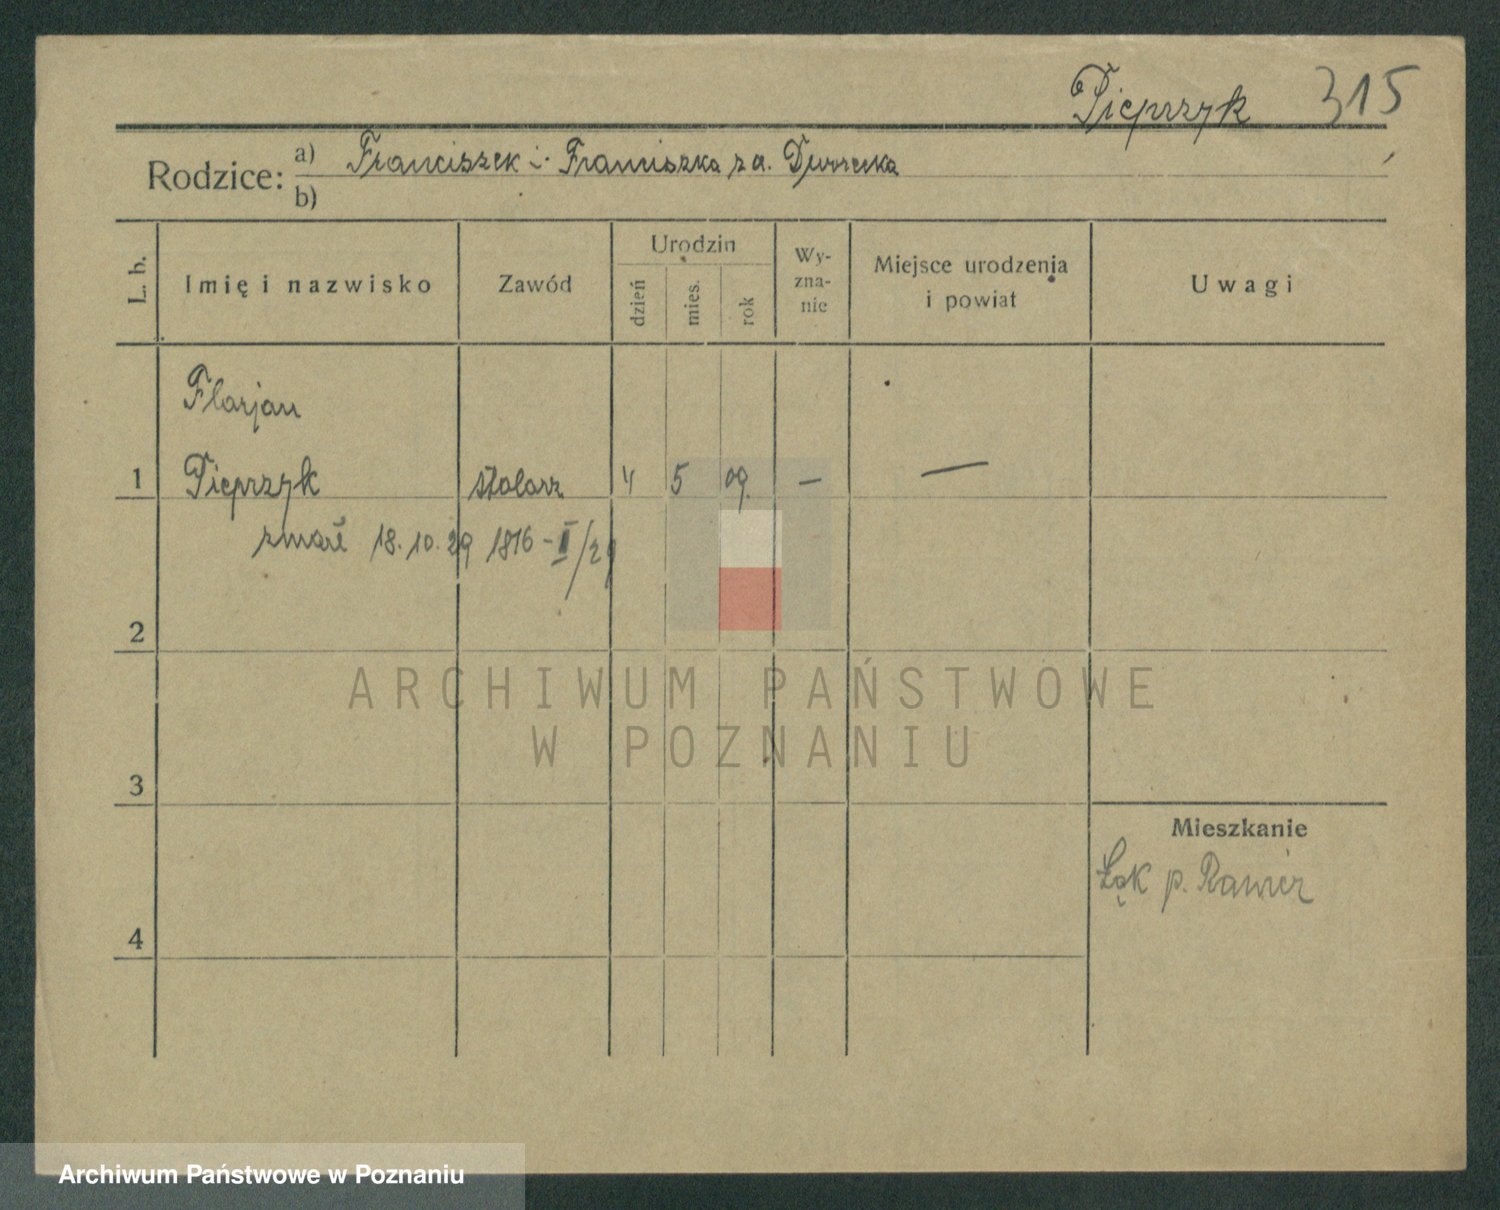 Pieprzyk 315
Rodzice: a) Franciszek i Franciszka z d. Dworecka
b)
L. b.
Imię i nazwisko
Zawód
Urodzin
dzień
mies.
rok
Wy-
zna-
nie
Miejsce urodzenia
i powiat
Uwagi
Florjan
1 Pieprzyk stolarz 4 5 09. — —
zmarł 18.10.29 1816-II/29
2
3
4
Mieszkanie
Łąk p. Rawicz
ARCHIWUM PAŃSTWOWE
W POZNANIU
Archiwum Państwowe w Poznaniu